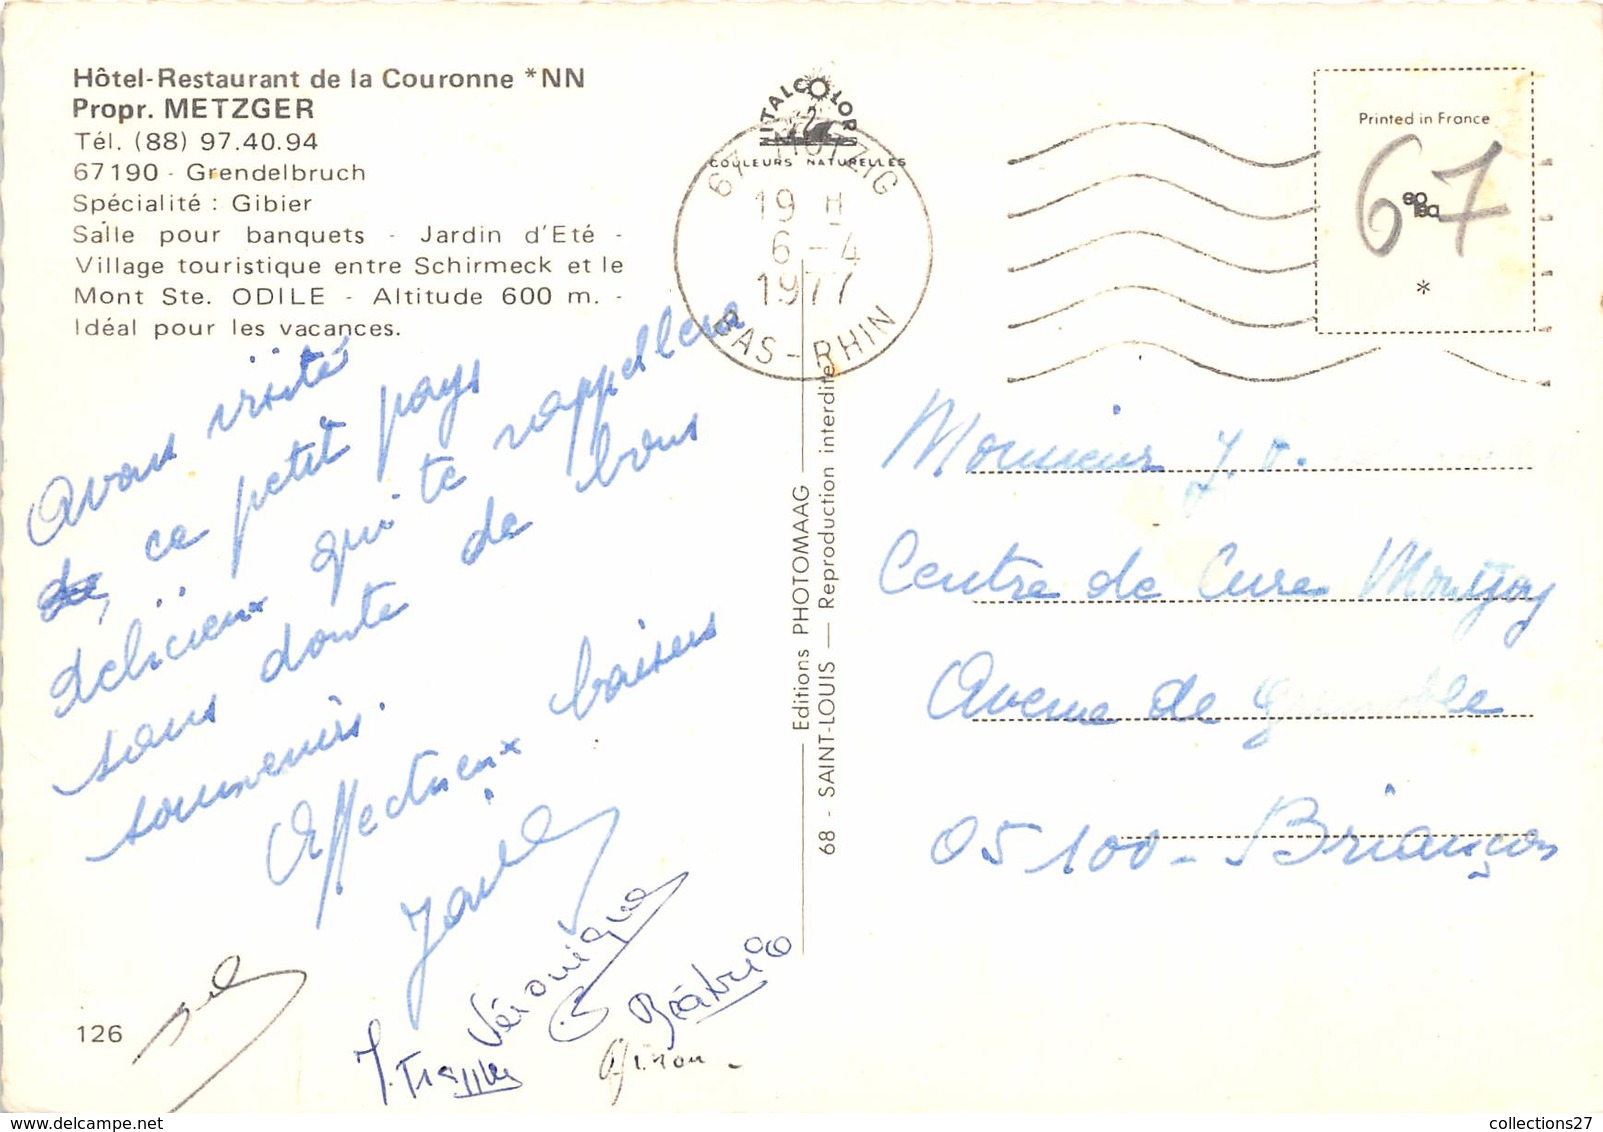 Hôtel-Restaurant de la Couronne *NN
Propr. METZGER
Tél. (88) 97.40.94
67190 - Grendelbruch
Spécialité : Gibier
Salle pour banquets - Jardin d'Eté -
Village touristique entre Schirmeck et le
Mont Ste. ODILE - Altitude 600 m. -
Idéal pour les vacances.
VITALCOLOR
COULEURS NATURELLES
67 MUTZIG
19 H
6-4
1977
BAS-RHIN
Printed in France
67
*
Avons visité
ce petit pays
délicieux qui te rappellera
sans doute de bons
souvenirs.
Affectueux baisers
Véronique
Béatrice
126
Editions PHOTOMAAG
68 - SAINT-LOUIS — Reproduction interdite
Monsieur
Centre de Cures Montjoy
Avenue de Grenoble
05100 - Briançon
collections27